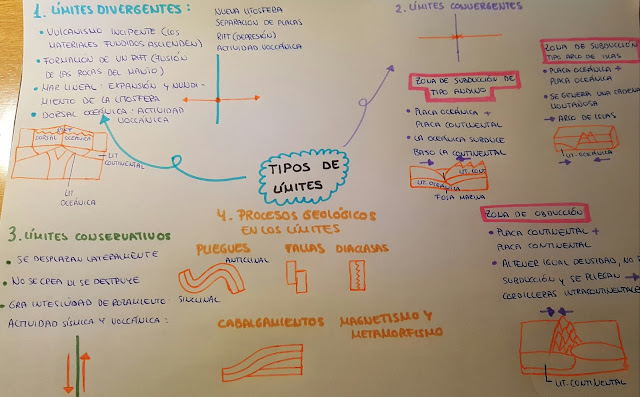 1. LÍMITES DIVERGENTES:
• VULCANISMO INCIPENTE (LOS
MATERIALES FUNDIDOS ASCIENDEN)
• FORMACIÓN DE UN RIFT (FUSIÓN
DE LAS ROCAS DEL MANTO)
• MAR LINEAL: EXPANSIÓN Y HUNDI-
MIENTO DE LA LITOSFERA
• DORSAL OCEÁNICA: ACTIVIDAD
VOLCÁNICA
NUEVA LITOSFERA
SEPARACIÓN DE PLACAS
RIFT (DEPRESIÓN)
ACTIVIDAD VOLCÁNICA
RIFT
DORSAL OCEÁNICA
LIT
CONTINENTAL
LIT
OCEÁNICA
TIPOS DE
LÍMITES
2. LÍMITES CONVERGENTES
ZONA DE SUBDUCCIÓN DE
TIPO ANDINO
• PLACA OCEÁNICA +
PLACA CONTINENTAL
• LA OCEÁNICA SUBDUCE
BAJO LA CONTINENTAL
LIT. CONT
LIT. OCEÁNICA
FOSA MARINA
ZONA DE SUBDUCCIÓN
TIPO ARCO DE ISLAS
• PLACA OCEÁNICA +
PLACA OCEÁNICA
• SE GENERA UNA CADENA
MONTAÑOSA
→ ARCO DE ISLAS
LIT. OCEÁNICA
ZONA DE OBDUCCIÓN
• PLACA CONTINENTAL +
PLACA CONTINENTAL
• AL TENER IGUAL DENSIDAD, NO
SUBDUCCIÓN Y SE PLIEGAN →
CORDILLERAS INTRACONTINENTALES
LIT. CONTINENTAL
3. LÍMITES CONSERVATIVOS
• SE DESPLAZAN LATERALMENTE
• NO SE CREA NI SE DESTRUYE
• GRA INTESIDAD DE ROZAMIENTO:
ACTIVIDAD SÍSMICA Y VOLCÁNICA:
4. PROCESOS GEOLÓGICOS
EN LOS LÍMITES
PLIEGUES FALLAS DIACLASAS
ANTICLINAL
SINCLINAL
CABALGAMIENTOS MAGNETISMO Y
METAMORFISMO